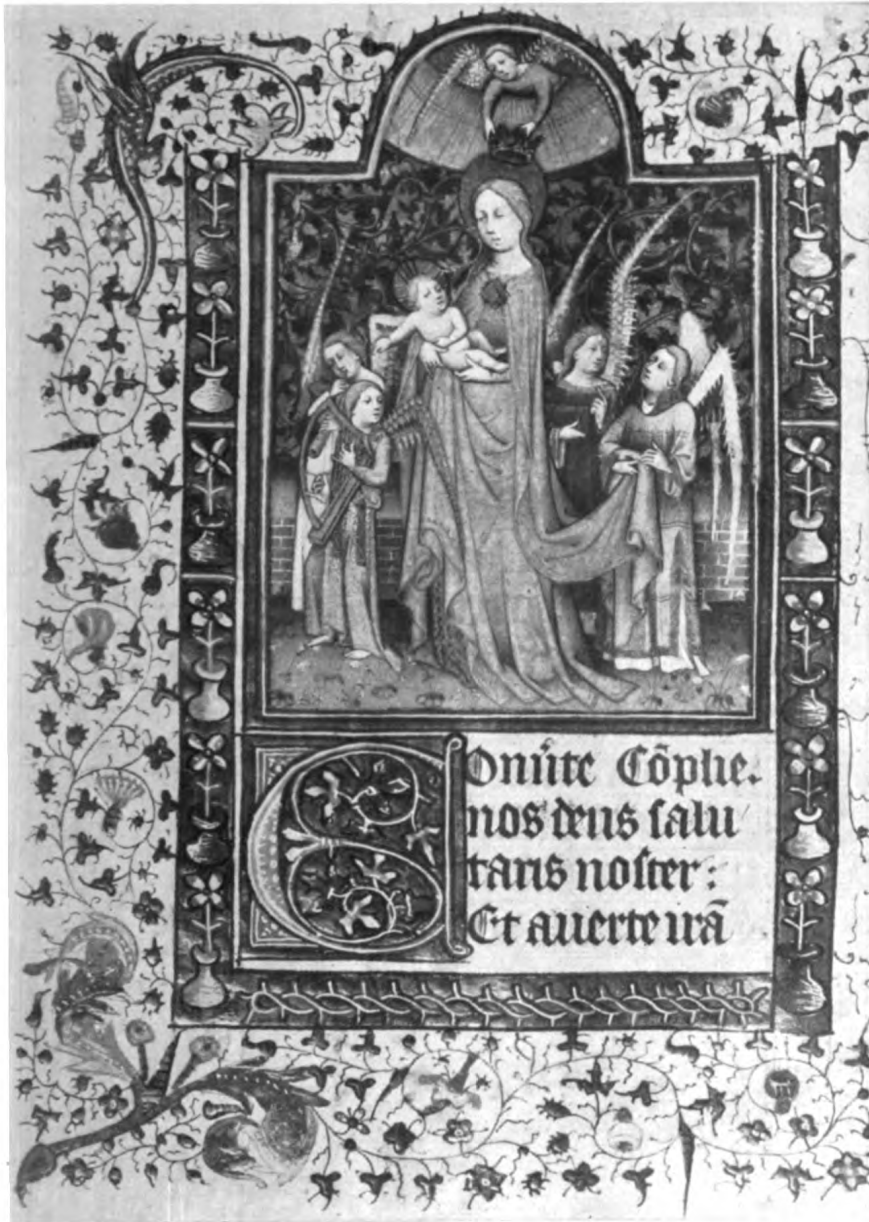 Conũte Cõplie.
nos deus ſalu
taris noſter:
Et auerte irã